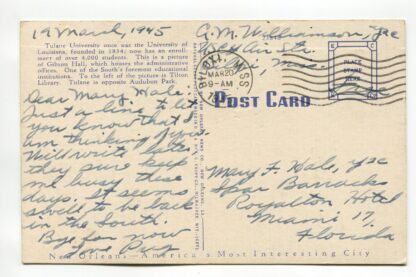 19 March, 1945
Tulane University once was the University of
Louisiana, founded in 1834; now has an enroll-
ment of over 4,000 students. This is a picture
of Gibson Hall, which houses the administrative
offices. One of the South's foremost educational
institutions. To the left of the picture is Tilton
Library. Tulane is opposite Audubon Park.
Dear Mary Hale,
Just a line to let
you know that I
am thinking of you.
Will write later,
they sure keep
me busy these
days. It seems
swell to be back
in the South.
Bye for now
G. M. Williamson, Y2c
Air Sta.
Miss.
BILOXI, MISS
MAR 20
9-AM
POST CARD
PLACE
STAMP
HERE
Mary F. Hale, Y2c
Spar Barracks
Royalton Hotel
Miami 17,
Florida
New Orleans—America's Most Interesting City